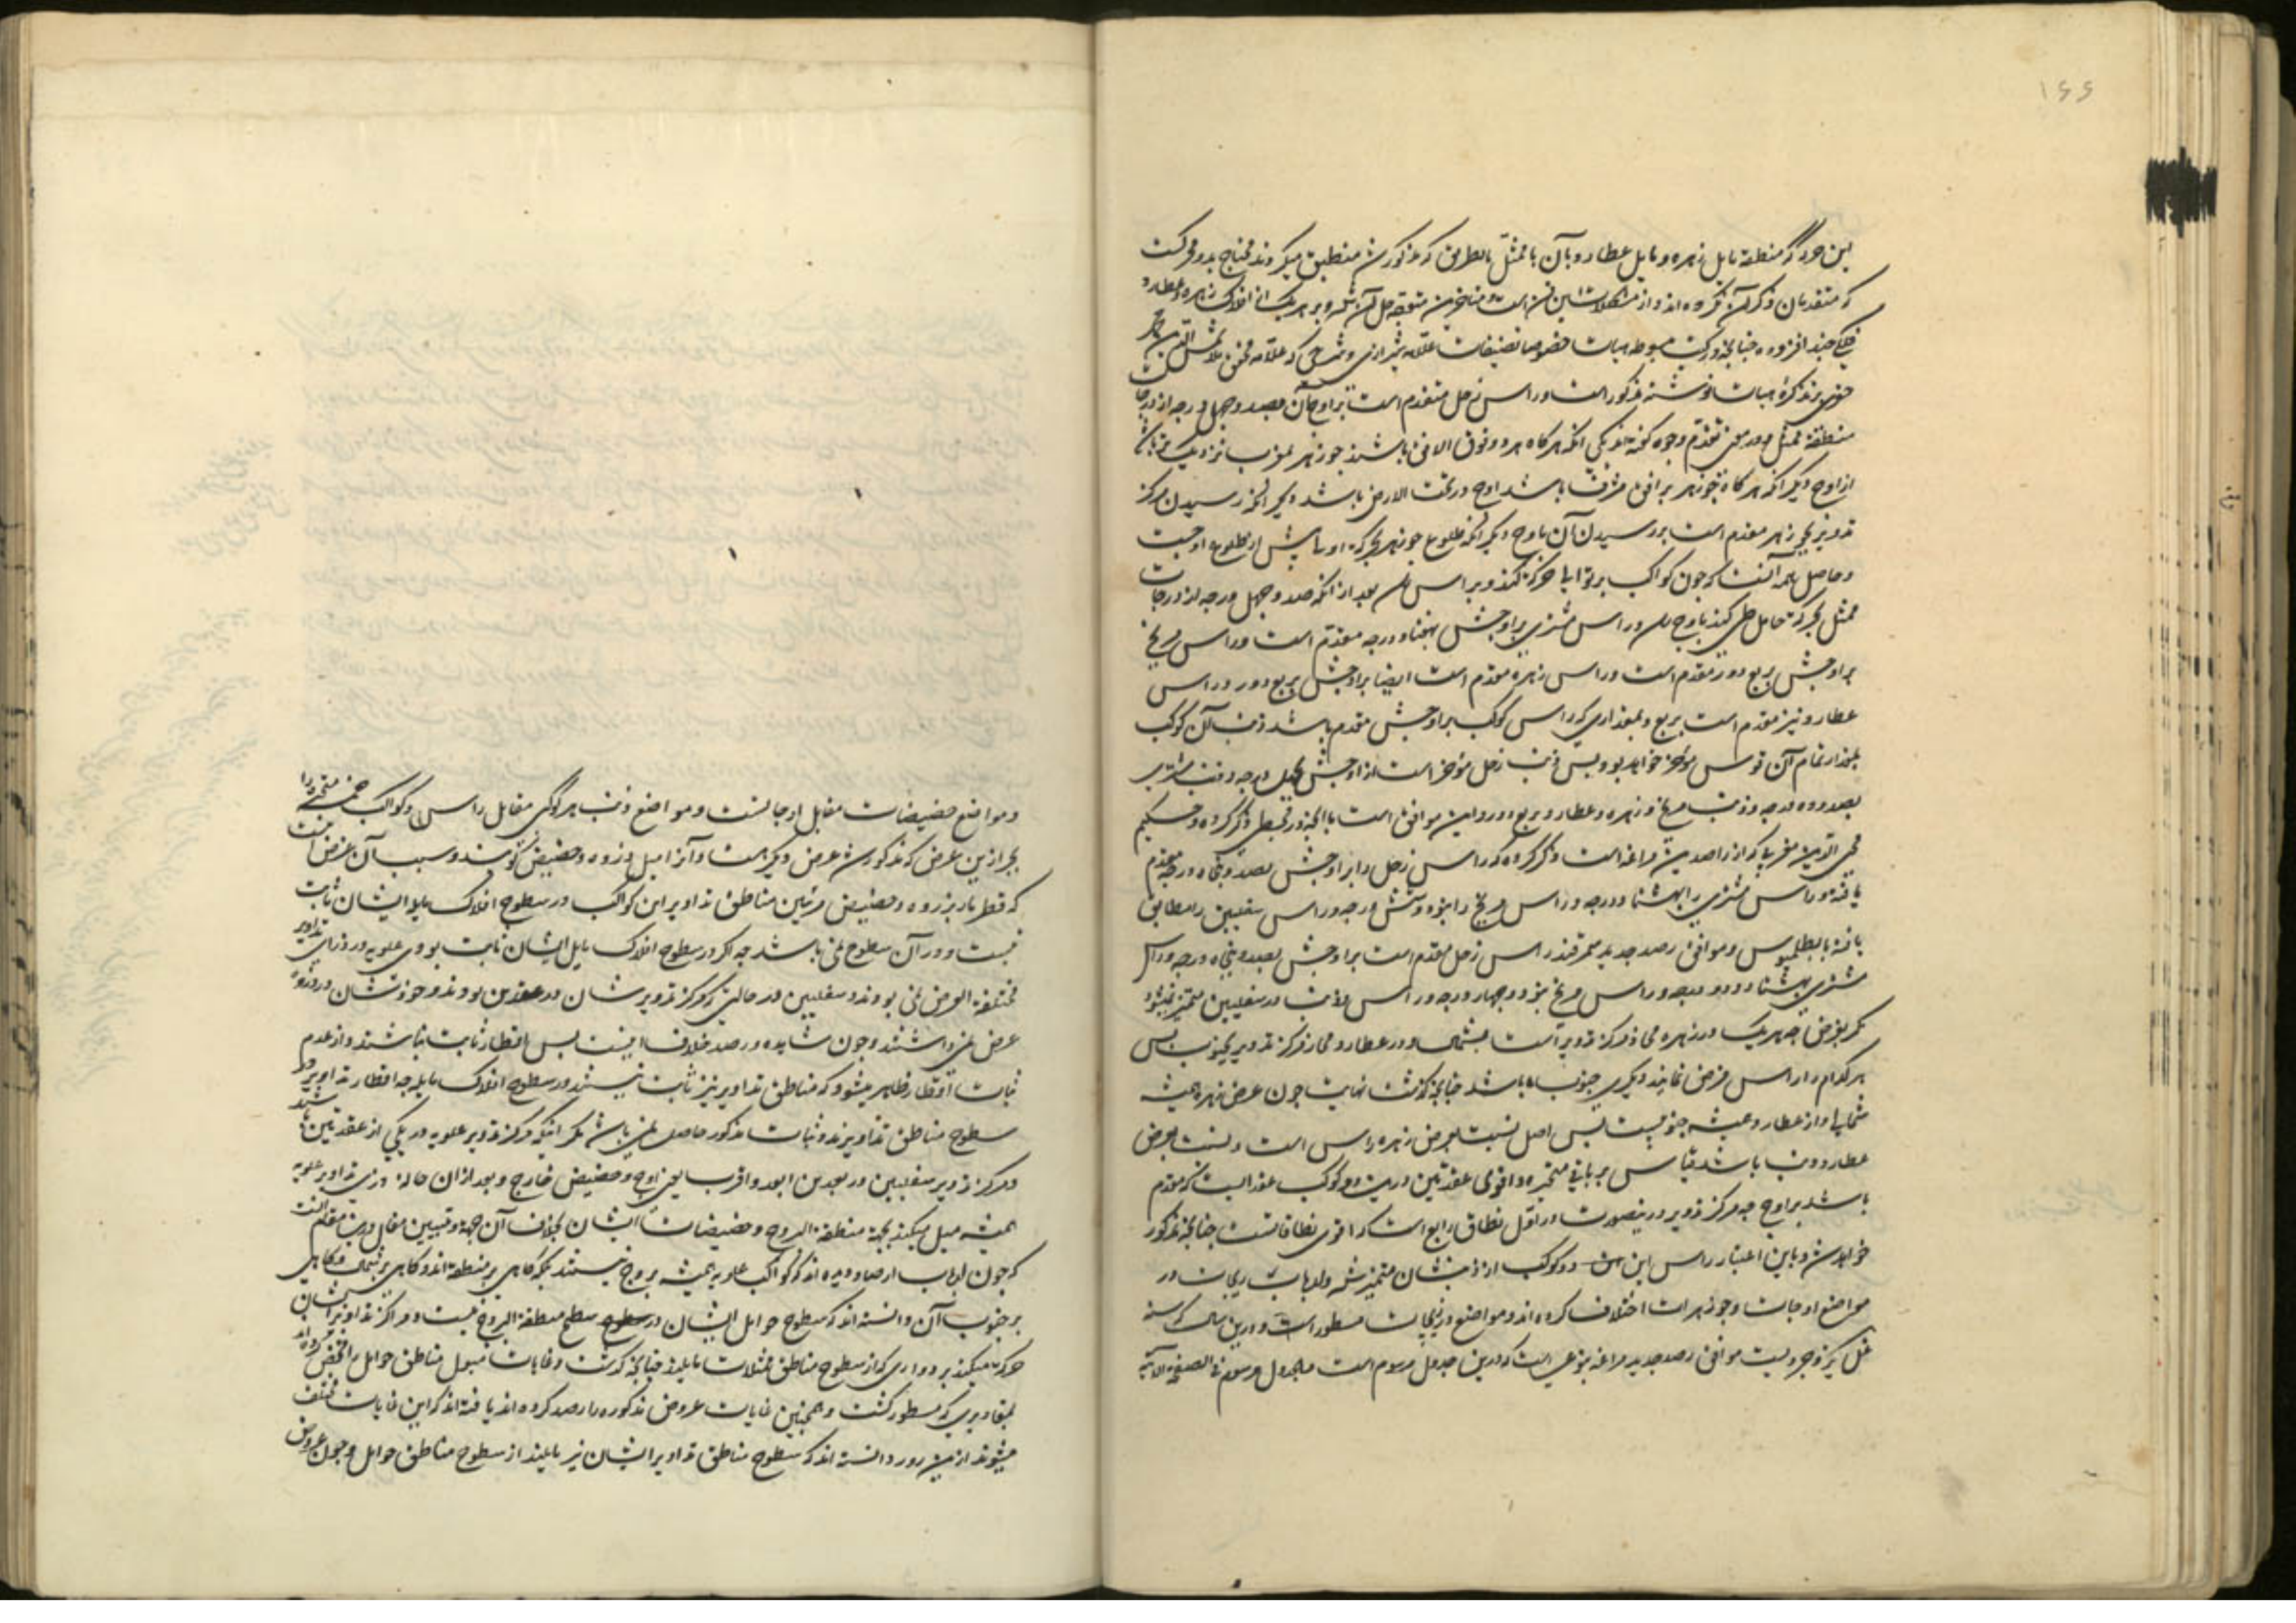 ۱۶۶
بین جزو که منطقهٔ مایل زهره و مایل عطارد با آن با ممثل بالطریق که مذکور شد منطبق میگردند محتاج بدو محرکست
که متقدمان ذکر آن نکرده‌اند و از مشکلات این فن است و متاخرین متوجه حل آن شده و بر هر یک از افلاک زهره و عطارد
فلکی چند افزوده چنانچه در کتب مبسوطه هیات خصوصا تصنیفات علامه شیرازی و شرحی که علامه محقق ملا شمس الدین محمد
خفری بر تذکره هیات نوشته مذکور است و راس زحل متقدم است بر اوج آن بصد و چهل درجه از درجات
منطقه ممثل و در معنی تقدم وجوه گفته‌اند یکی آنکه هر گاه هر دو فوق الافق باشند جوزهر بمغرب نزدیکتر باشد
از اوج دیگر آنکه هر گاه جوزهر بر افق مشرق باشد اوج در تحت الارض باشد دیگر آنکه رسیدن مرکز
تدویر بجوزهر مقدم است بر رسیدن آن باوج دیگر آنکه طلوع جوزهر بحرکة اولی پیش از طلوع اوجست
و حاصل همه آنست که چون کواکب بر توالی حرکة کنند و بر راس بعد از آنکه صد و چهل درجه از درجات
ممثل بحرکة حامل طی کند باوج رسد و راس مشتری بر اوجش بهفتاد درجه مقدم است و راس مریخ
بر اوجش بربع دور مقدم است و راس زهره مقدم است ایضا بر اوجش بربع دور و راس
عطارد نیز مقدم است بربع و بمقداری که راس کوکب بر اوجش مقدم باشد ذنب آن کوکب
بمقدار تمام آن قوس موخر خواهد بود پس ذنب زحل موخر است از اوجش بچهل درجه و ذنب مشتری
بصد و ده درجه و ذنب مریخ و زهره و عطارد بربع دور و این موافق است با آنچه در مجسطی ذکر کرده و حکیم
محی الدین مغربی که از راصدین مراغه است ذکر کرده که راس زحل را بر اوجش بصد و پنجاه درجه مقدم
یافته و راس مشتری را بهشتاد درجه و راس مریخ را بنود و شش درجه و راس سفلیین را مطابق
یافته با بطلمیوس و موافق رصد جدید سمرقند راس زحل مقدم است بر اوجش بصد و پنجاه درجه و راس
مشتری بهشتاد و دو درجه و راس مریخ بنود و چهار درجه و راس و ذنب در سفلیین متمیز نمیشود
مگر بفرض چه هر یک در زهره محاذ مرکز تدویر است بشمال و در عطارد محاذ مرکز تدویر بجنوب پس
هر کدام را راس فرض نمایند دیگری ذنب باشد چنانچه گذشت نهایت چون عرض زهره همیشه
شمالی و از عطارد همیشه جنوبیست پس اصل نسبت بعرض زهره راس است و نسبت بعرض
عطارد ذنب باشد قیاس بر باقی متحیره و اقوی عقدتین درین دو کوکب عقدالیست که مقدم
باشد بر اوج چه مرکز تدویر درینصورت در اول نطاق رابع است که اقوی نطاقاتست چنانچه مذکور
خواهد شد و باین اعتبار راس این دو کوکب از ذنبشان متمیز شد و ارباب زیجات در
مواضع اوجات و جوزهرات اختلاف کرده‌اند و مواضع در زیجات مسطور است و درین سال که سنه
موافق رصد جدید مراغه بنوعیست که درین جدول مرسوم است و الجدول مرسوم فی الصفحة الآتیة
و مواضع حضیضات مقابل اوجاتست و مواضع ذنب هر کوکبی مقابل راس او و کواکب خمسه متحیره را
بجز ازین عرض که مذکور شد عرض دیگر هست و آنرا میل ذروه و حضیض گویند و سبب آن عرض آنست
که قطر مار بذروه و حضیض مرئیین مناطق تداویر این کواکب در سطوح افلاک مایله ایشان ثابت
نیست و در آن سطوح نمی‌باشد چه اگر در سطوح افلاک مایل ایشان ثابت بودی علویه در ذرای تداویر
مختلفة العرض نمی‌بودند و سفلیین در حالتی که مرکز تدویرشان در عقدتین بودند و خودشان در ذروه
عرض نمیداشتند و چون مشاهده و رصد خلاف اینست پس اقطار ثابت نباشند و از عدم
ثبات اقطار ظاهر میشود که مناطق تداویر نیز ثابت نیستند در سطوح افلاک مایله چه اقطار تداویر در
سطوح مناطق تداویرند و ثبات مذکور حاصل نمی‌باشد مگر آنکه مرکز تدویر علویه در یکی از عقدتین باشد
و مرکز تدویر سفلیین در بعدین ابعد و اقرب یعنی اوج و حضیض خارج و بعد از آن حاله ذری تداویر علویه
همیشه میل میکنند بجهة منطقة البروج و حضیضات ایشان بخلاف آن جهة و تبیین مقال درین مقام آنست
که چون ارباب ارصاد دیده‌اند که کواکب علویه همیشه بر وج نیستند بلکه گاهی بر منطقه‌اند و گاهی بر شمال و گاهی
بر جنوب آن دانسته‌اند که سطوح حوامل ایشان در سطح منطقة البروج نیست و مراکز تداویر ایشان
حرکة میکنند بر دوایری که از سطوح مناطق ممثلات مایلند چنانچه گذشت و غایات میول مناطق حوامل را تحقیق کرده‌اند
بمقادیری که مسطور گشت و همچنین غایات عروض مذکوره را رصد کرده‌اند یافته‌اند که این غایات مختلف
میشوند ازین رو دانسته‌اند که سطوح مناطق تداویر ایشان نیز مایلند از سطوح مناطق حوامل و چون عروض